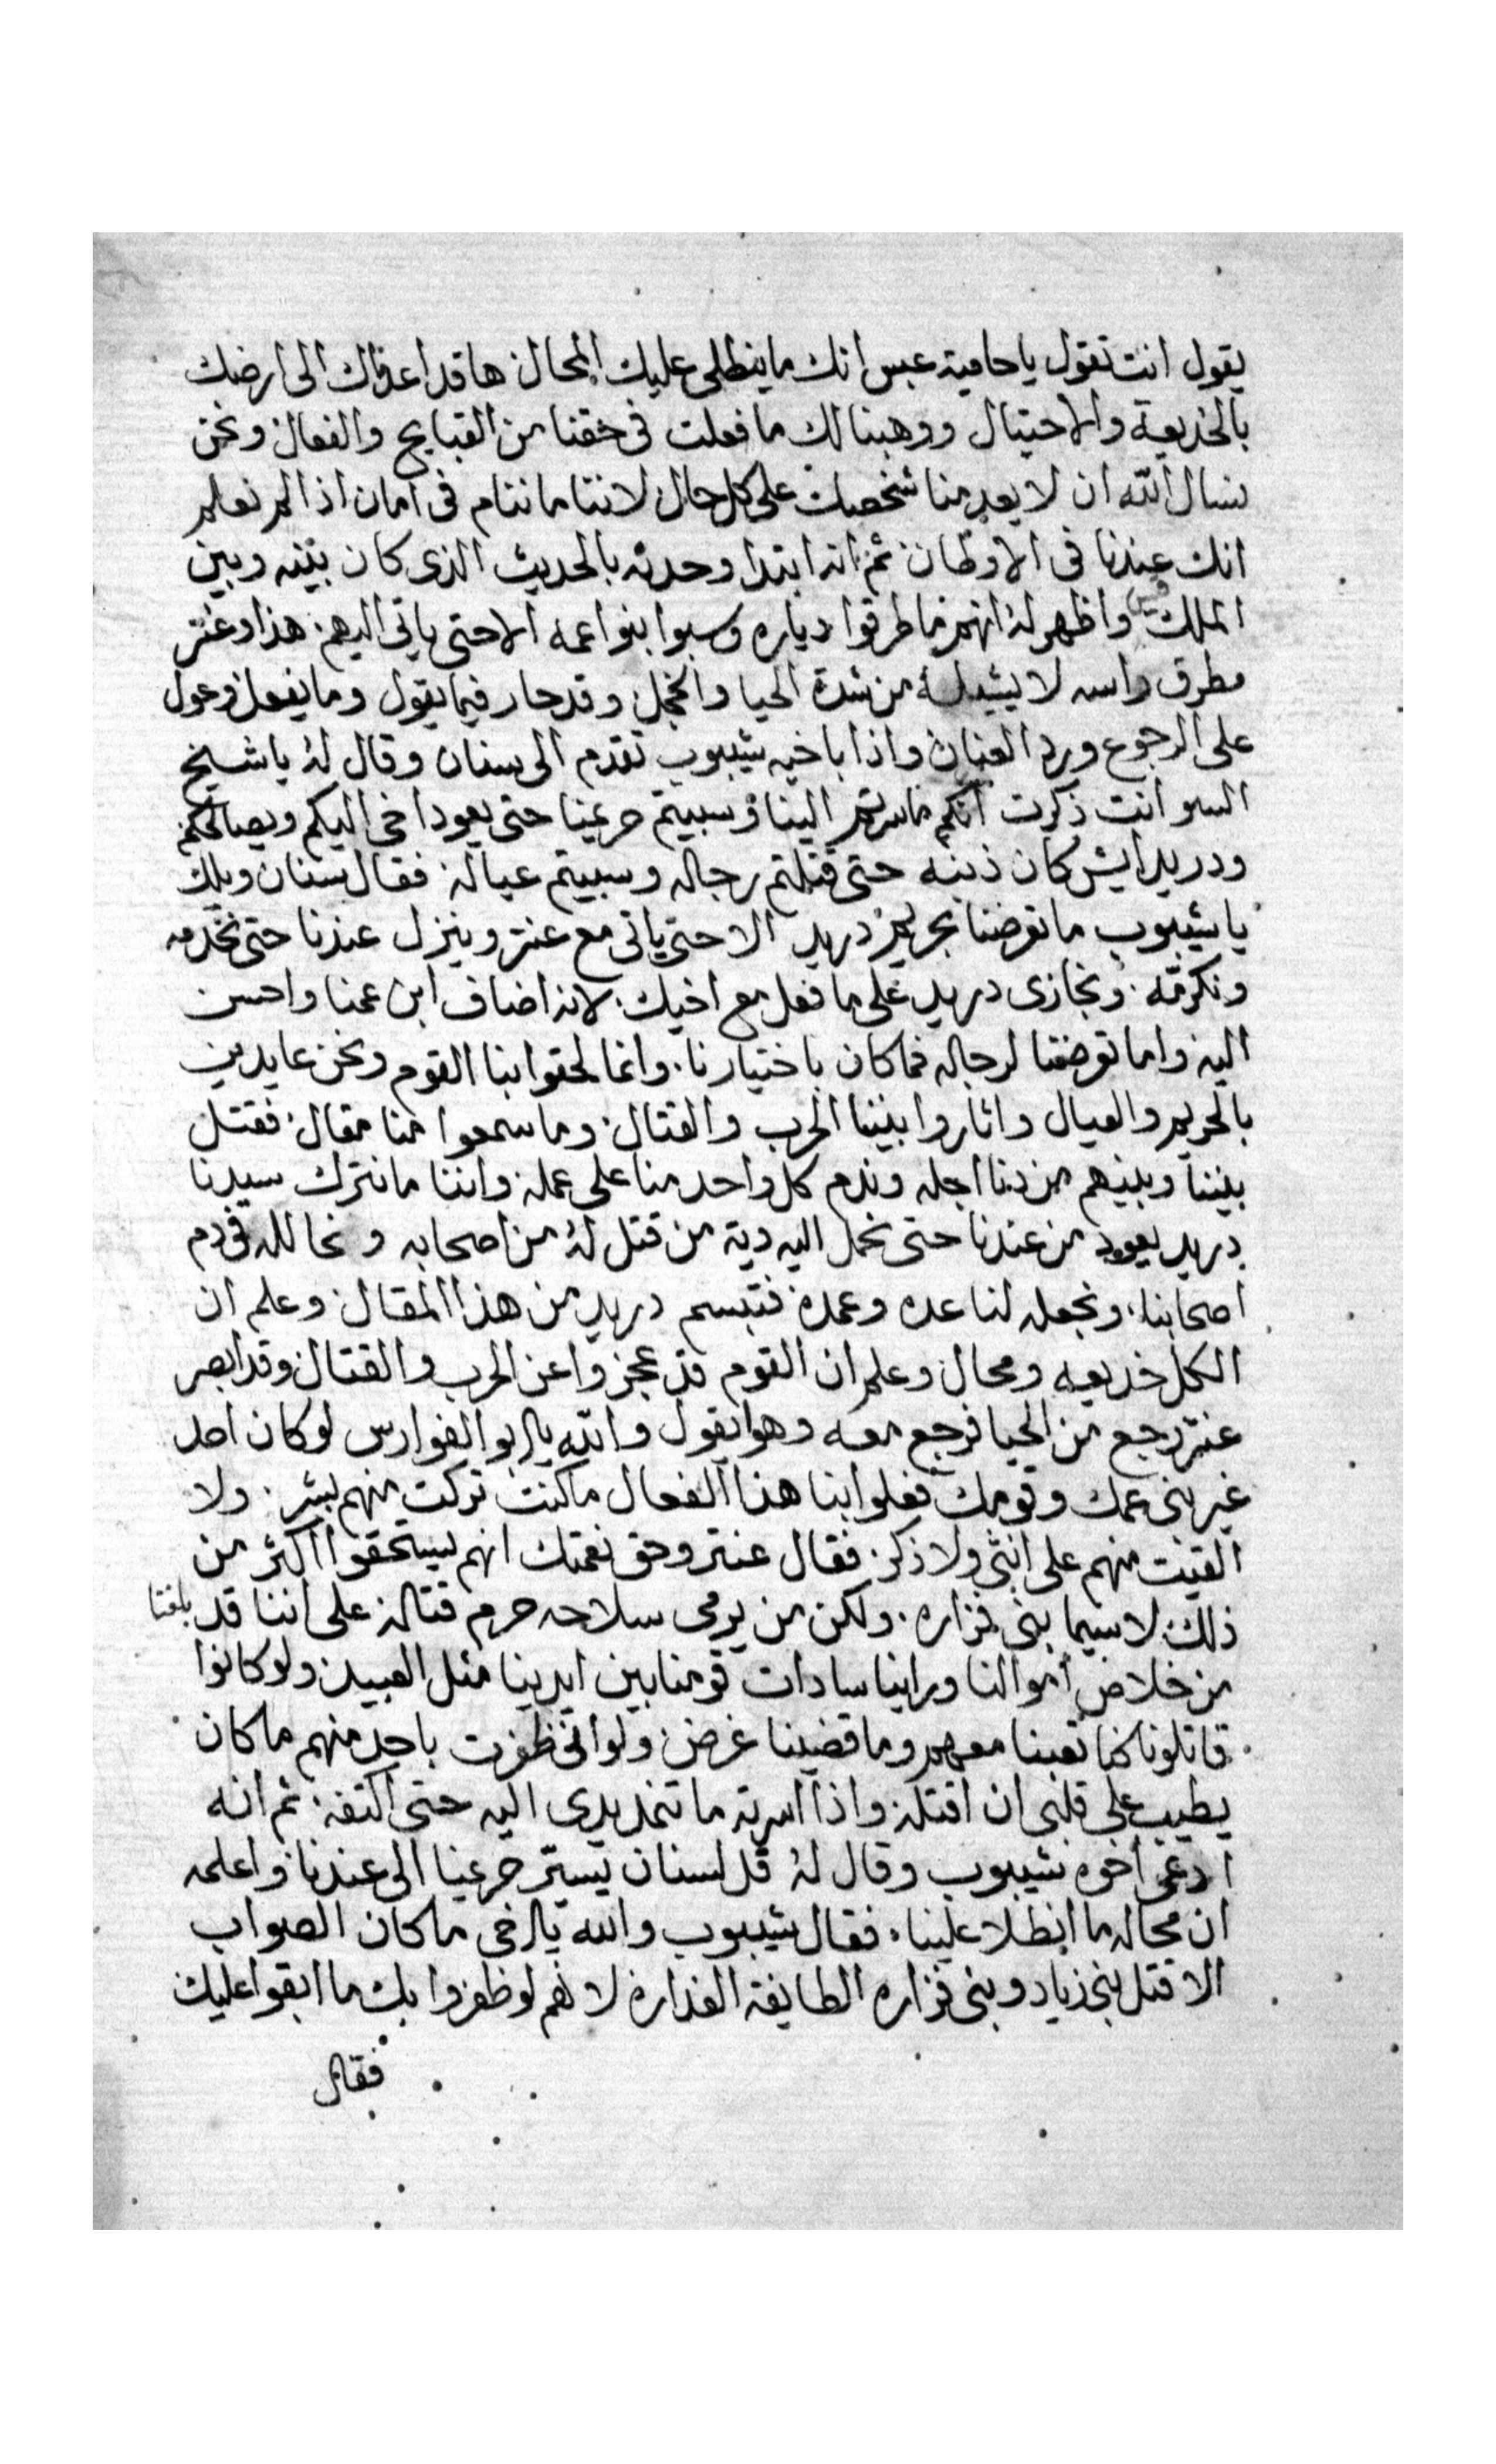 يقول انت تقول يا حامية عبس انك ما ينطلى عليك المحال ها قد اعدناك الى ارضك
بالخديعة والاحتيال ووهبنا لك ما فعلت فى حقنا من القبايح والفعال ونحن
نسال الله ان لا يعدمنا شخصك على كل حال لاننا ما ننام فى امان اذا لم نعلم
انك عندنا فى الاوطان ثم انه ابتدا وحدثه بالحديث الذى كان بينه وبين
الملك قيس واظهر له انهم ما طرقوا دياره وسبوا بنوا عمه الا حتى ياتى اليهم هذا وعنتر
مطرق راسه لا يشيله من شدة الحيا والخجل وقد حار فيما يقول وما يفعل وعول
على الرجوع ورد العنان واذا باخيه شيبوب تقدم الى سنان وقال له يا شيخ
السو انت ذكرت انكم ما سرتم الينا وسبيتم حريمنا حتى يعود اخى اليكم ويصالحكم
ودريد ايش كان ذنبه حتى قتلتم رجاله وسبيتم عياله فقال سنان ويلك
يا شيبوب ما تعرضنا بحريم دريد الا حتى ياتى مع عنتر وينزل عندنا حتى نخدمه
ونكرمه ونجازى دريد على ما فعل مع اخيك لانه اضاف ابن عمنا واحسن
اليه واما تعرضنا لرجاله فما كان باختيارنا وانما لحقوا بنا القوم ونحن عايدين
بالحريم والعيال واثاروا بيننا الحرب والقتال وما سمعوا منا مقال فقتل
بيننا وبينهم من دنا اجله وندم كل واحد منا على عمله واننا ما نترك سيدنا
دريد يعود من عندنا حتى نحمل اليه دية من قتل له من اصحابه ونحالله فى دم
اصحابنا ونجعله لنا عده وعمدة فتبسم دريد من هذا المقال وعلم ان
الكل خديعه ومحال وعلم ان القوم قد عجزوا عن الحرب والقتال وقد ابصر
عنتر رجع من الحيا فرجع معه وهو يقول والله يا ابو الفوارس لو كان احد
غير بنى عمك وقومك فعلوا بنا هذا الفعال ما كنت تركت منهم بشر ولا
القيت منهم على انثى ولا ذكر فقال عنتر وحق نعمتك انهم يستحقوا اكثر من
ذلك لاسيما بنى فزاره ولكن من يرمى سلاحه حرم قتاله على اننا قد بلغنا
من خلاص اموالنا وراينا سادات قومنا بين ايدينا مثل العبيد ولو كانوا
قاتلونا كنا تعبنا معهم وما قضينا غرض ولو انى ظفرت باحد منهم ما كان
يطيب على قلبى ان اقتله واذا اسرته ما تنمد يدى اليه حتى اكتفه ثم انه
ادعى اخوه شيبوب وقال له قل لسنان يسير حريمنا الى عندنا واعلمه
ان محاله ما انطلا علينا فقال شيبوب والله يا اخى ما كان الصواب
الا قتل بنى زياد وبنى فزاره الطايفة الغداره لانهم لو ظفروا بك ما ابقوا عليك
فقال